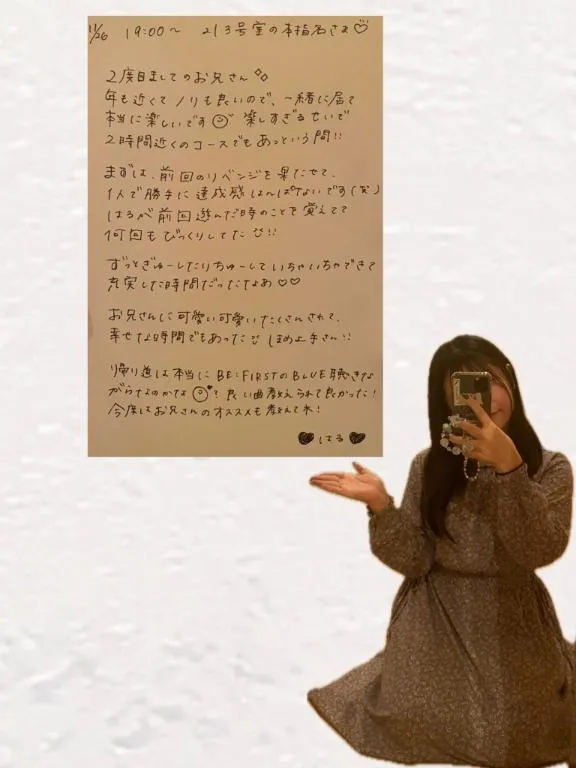 11/26 19:00〜 213号室の本指名さま♡
2度目ましてのお兄さん
年も近くてノリも良いので、一緒に居て
本当に楽しいです 楽しすぎるせいで
2時間近くのコースでもあっという間!!
まずは、前回のリベンジを果たせて、
1人で勝手に達成感はんぱないです(笑)
はるが前回遊んだ時のことを覚えてて
何回もびっくりしてた!!
ずっとぎゅーしたりちゅーしていちゃいちゃできて
充実した時間だったなあ♡♡
お兄さんに可愛い可愛いたくさんされて、
幸せな時間でもあった ほめ上手さん!!
帰り道は本当にBE:FIRSTのBLUE聴きな
がらなのかな? 良い曲教えられて良かった!
今度はお兄さんのオススメも教えてね!
♥はる♥